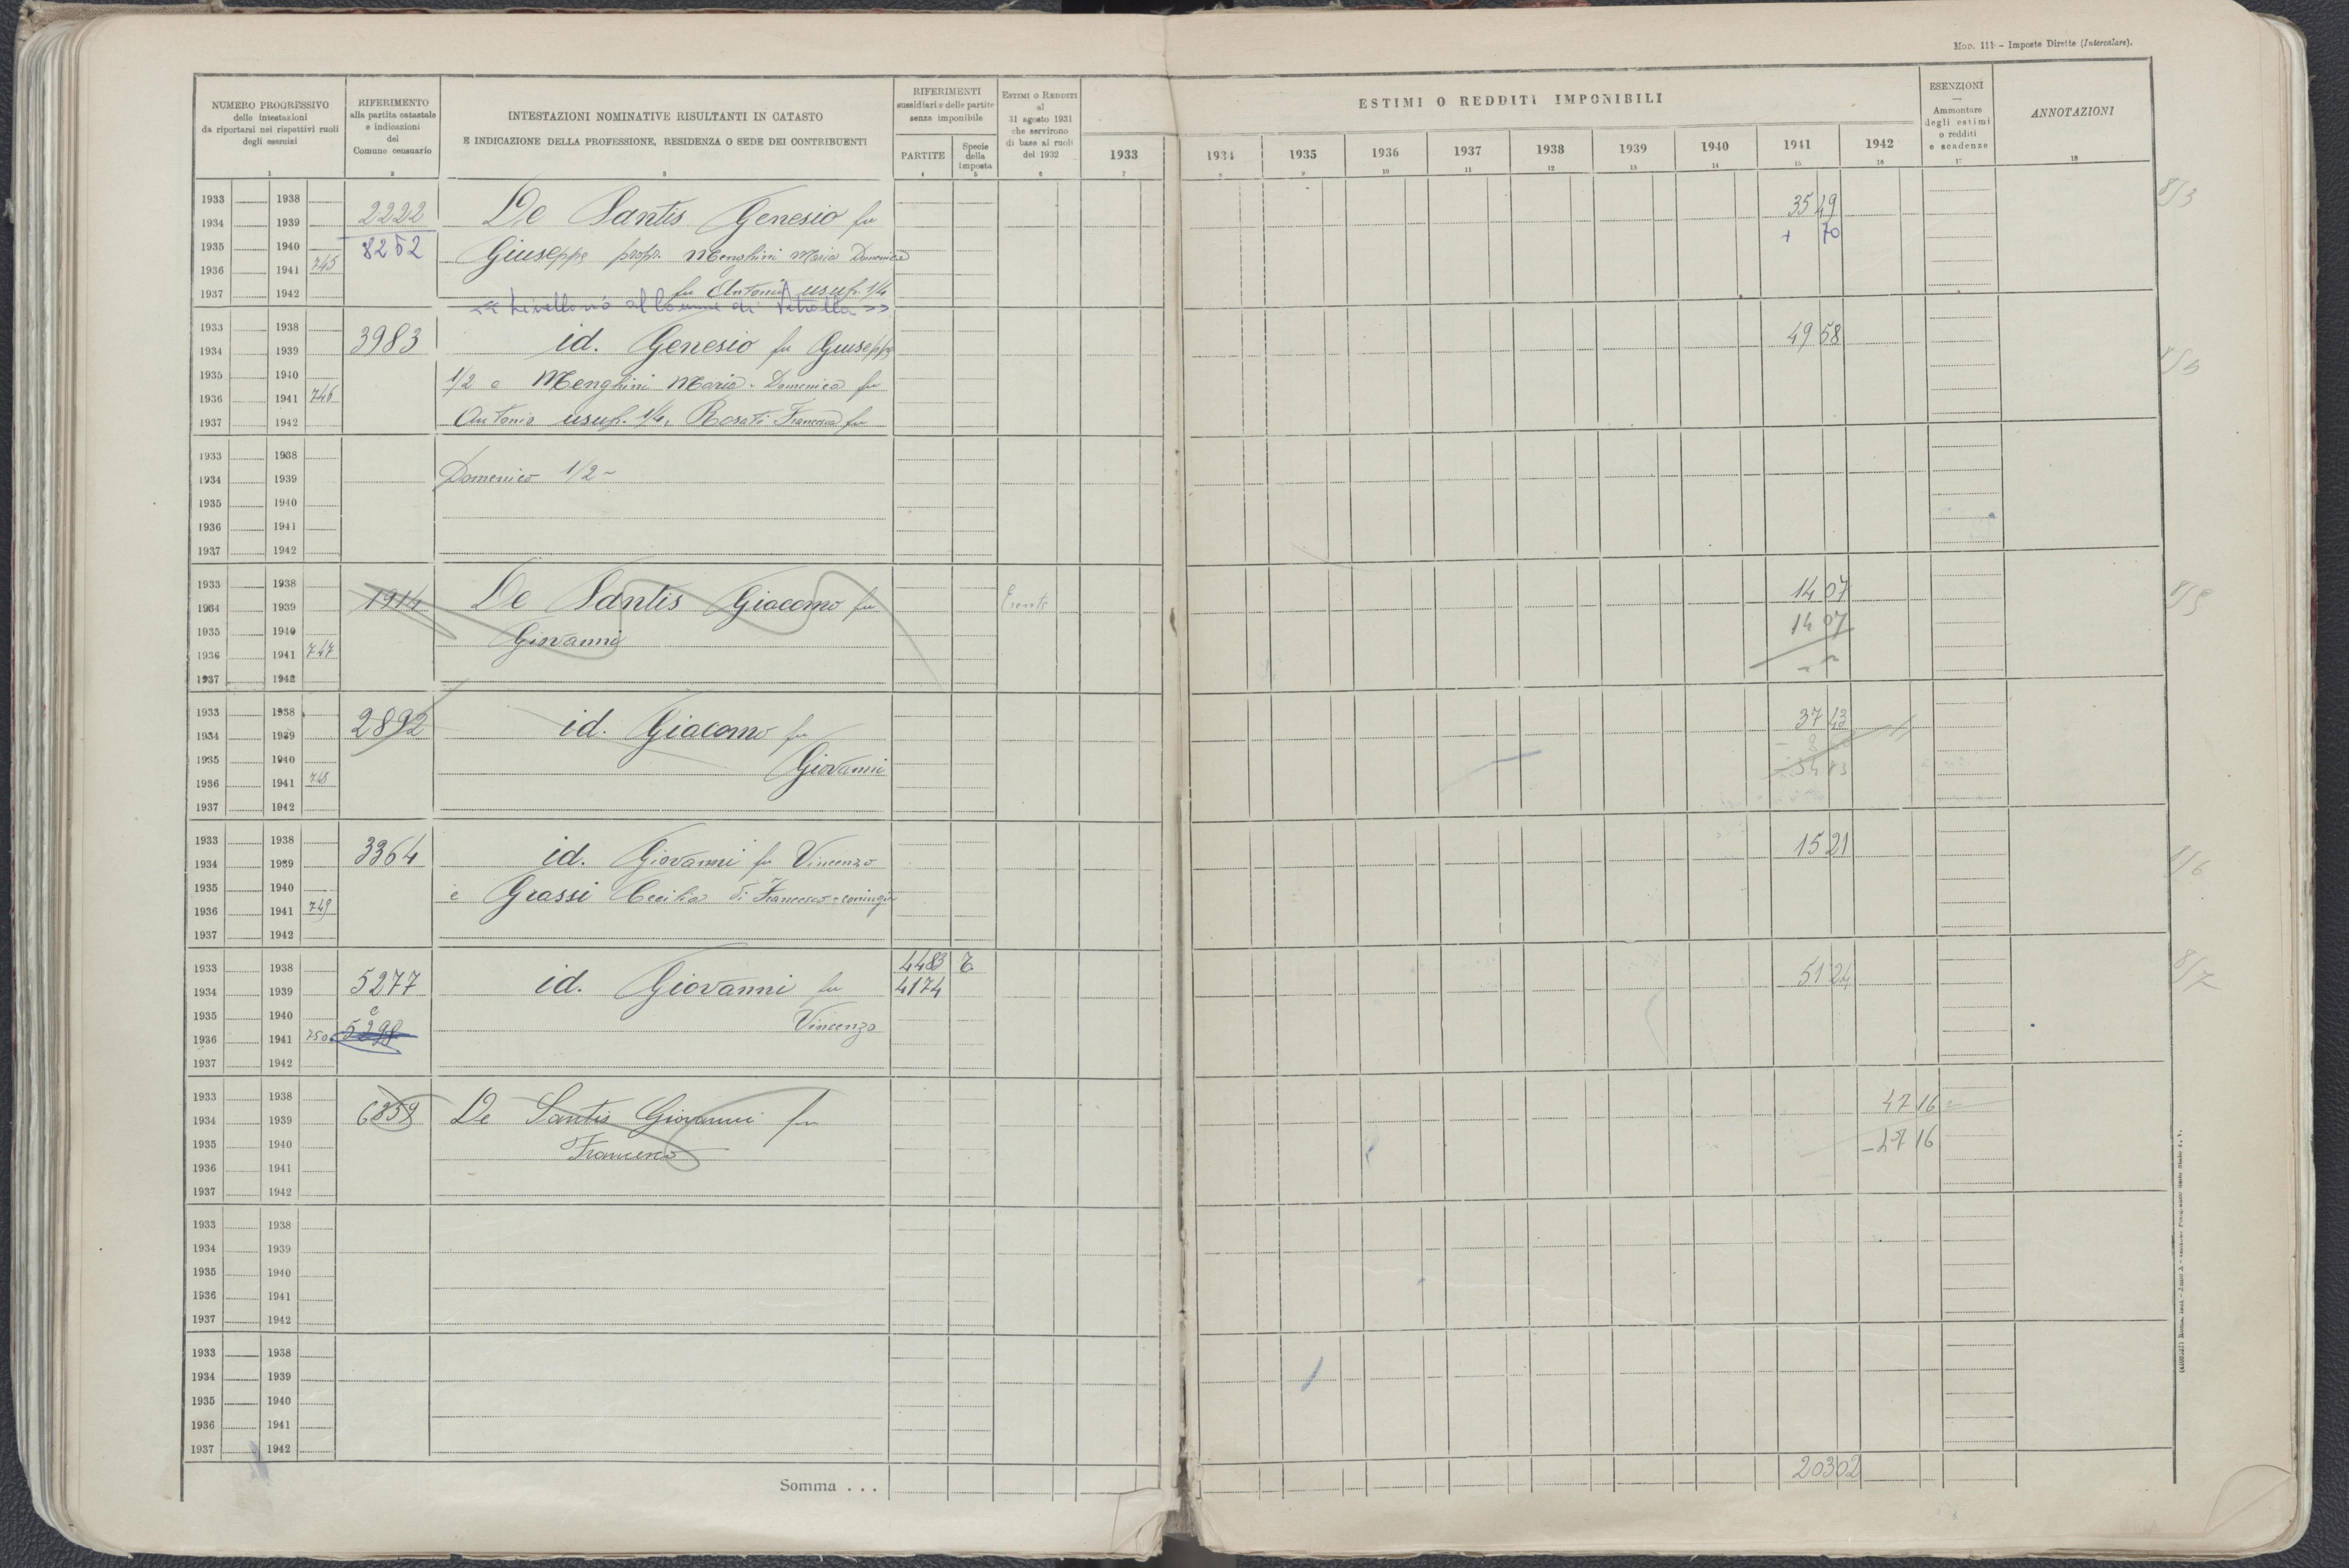 Mod. 111 - Imposte Dirette (Intercalare).
NUMERO PROGRESSIVO
delle intestazioni
da riportarsi nei rispettivi ruoli
degli esercizi
RIFERIMENTO
alla partita catastale
e indicazioni
del
Comune censuario
INTESTAZIONI NOMINATIVE RISULTANTI IN CATASTO
E INDICAZIONE DELLA PROFESSIONE, RESIDENZA O SEDE DEI CONTRIBUENTI
RIFERIMENTI
sussidiari e delle partite
senza imponibile
PARTITE
Specie
della
imposta
ESTIMI O REDDITI
al
31 agosto 1931
che servirono
di base ai ruoli
del 1932
ESTIMI O REDDITI IMPONIBILI
1933 1934 1935 1936 1937 1938 1939 1940 1941 1942
ESENZIONI
Ammontare
degli estimi
o redditi
e scadenze
ANNOTAZIONI
1 2 3 4 5 6 7 8 9 10 11 12 13 14 15 16 17 18
1933 1938
1934 1939 2222 De Santis Genesio fu 35 49
1935 1940 8252 Giuseppe propr. Menghini Maria Domenica + 70
1936 1941 745
1937 1942 fu Antonio usuf. 1/4
8/3
1933 1938
1934 1939 3983 id. Genesio fu Giuseppe 49 58
1935 1940 1/2 e Menghini Maria Domenica fu
1936 1941 746
1937 1942 Antonio usuf. 1/4, Rosati Francesca fu
1933 1938
1934 1939 Domenico 1/2
1935 1940
1936 1941
1937 1942
1933 1938
1934 1939 1914 De Santis Giacomo fu Esente 14 07
1935 1940 Giovanni 14 07
1936 1941 747
1937 1942
8/5
1933 1938
1934 1939 2892 id. Giacomo fu 37 43
1935 1940 Giovanni
1936 1941 748
1937 1942
1933 1938
1934 1939 3364 id. Giovanni fu Vincenzo 15 21
1935 1940 e Grassi Cecilia di Francesco coniugi
1936 1941 749
1937 1942
8/6
1933 1938 4483 T.
1934 1939 5277 id. Giovanni fu 4174 51 24
1935 1940 Vincenzo
1936 1941 750 5298
1937 1942
8/7
1933 1938
1934 1939 6859 De Santis Giovanni fu 47 16
1935 1940 Francesco - 47 16
1936 1941
1937 1942
1933 1938
1934 1939
1935 1940
1936 1941
1937 1942
1933 1938
1934 1939
1935 1940
1936 1941
1937 1942
Somma . . . 203 02